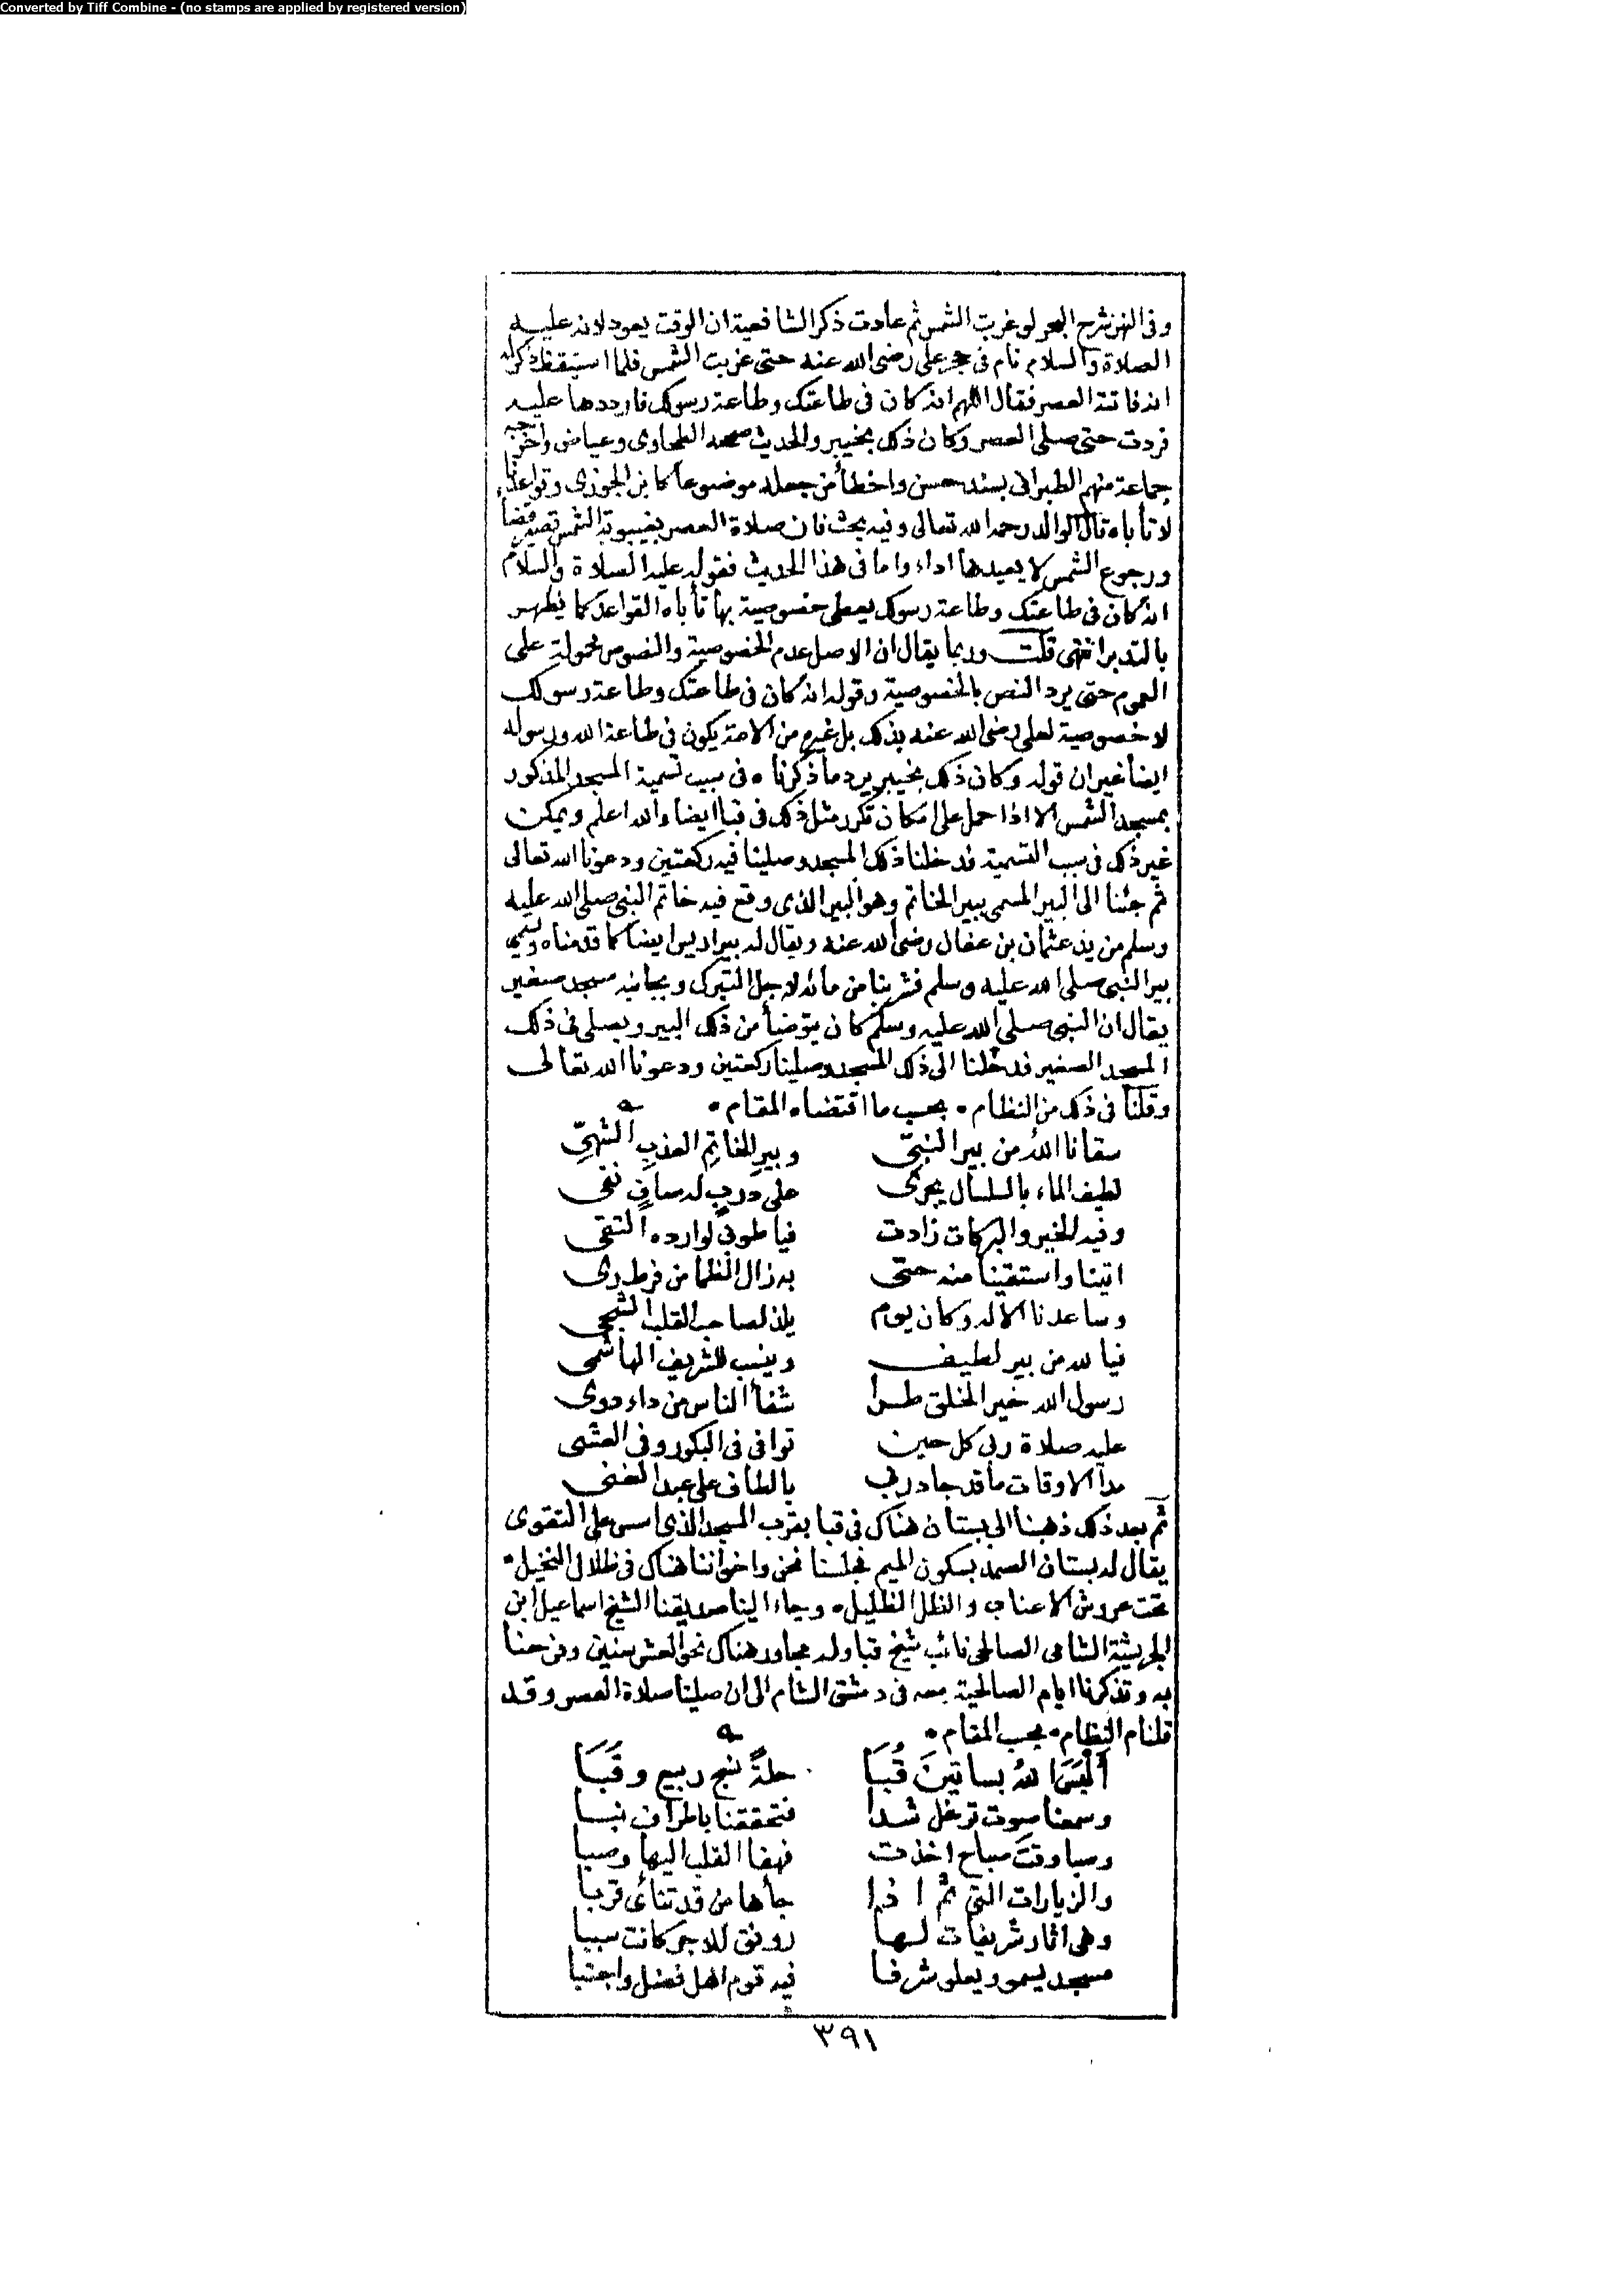 Converted by Tiff Combine - (no stamps are applied by registered version)
وفى النهر شرح البحر لو غربت الشمس ثم عادت ذكر الشافعية ان الوقت يعود لانه عليه
الصلاة والسلام نام فى حجر علي رضى الله عنه حتى غربت الشمس فلما استيقظ ذكر له
انه فاتته العصر فقال اللهم انه كان فى طاعتك وطاعة رسولك فارددها عليه
فردت حتى صلى العصر وكان ذلك بخيبر والحديث صححه الطحاوى وعياض واخرجه
جماعة منهم الطبرانى بسند حسن واخطأ من جعله موضوعا كابن الجوزى وقواعدنا
لا تأباه قال الوالد رحمه الله تعالى وفيه بحث فان صلاة العصر بغيبوبة الشمس تصير قضأ
ورجوع الشمس لا يعيدها أداء واما فى هذا الحديث فقوله عليه الصلاة والسلام
انه كان فى طاعتك وطاعة رسولك يعطى خصوصية بها تأباه القواعد كما يظهر
بالتدبر انتهى قلت وربما يقال ان الاصل عدم الخصوصية والنصوص محمولة على
العموم حتى يرد النص بالخصوصية وقوله انه كان فى طاعتك وطاعة رسولك
لا خصوصية لعلى رضى الله عنه بذلك بل غيره من الامة يكون فى طاعة الله ورسوله
ايضا غير ان قوله وكان ذلك بخيبر يرد ما ذكرناه فى سبب تسمية المسجد المذكور
بمسجد الشمس الا اذا حمل على مكان تكرر مثل ذلك فى قبا ايضا والله اعلم ويمكن
غير ذلك فى سبب التسمية فدخلنا ذلك المسجد وصلينا فيه ركعتين ودعونا الله تعالى
ثم جئنا الى البير المسمى ببير الخاتم وهو البير الذى وقع فيه خاتم النبى صلى الله عليه
وسلم من يد عثمان بن عفان رضى الله عنه ويقال له بير اريس ايضا كما قدمناه ويسمى
بير النبى صلى الله عليه وسلم فشربنا من مائه لاجل التبرك وبجانبه مسجد صغير
يقال ان النبى صلى الله عليه وسلم كان يتوضأ من ذلك البير ويصلى فى ذلك
المسجد الصغير فدخلنا الى ذلك المسجد وصلينا ركعتين ودعونا الله تعالى
وقلنا فى ذلك من النظام • بحسب ما اقتضاه المقام •
سقانا الله من بير النبىّ وبيرِ الخاتِم العذبِ الشهىِّ
لطيف الماء بالسلسال يجرى على دربٍ له صافٍ نقى
وفيه الخير والبركات زادت فيا طوبى لوارده التقى
اتينا واستقينا منه حتى به زال الظما من فرط رى
وساعدنا الاله وكان يوم يلذ لصاحب القلب الشجى
فيا لله من بير لطيف وينسب للشريف الهاشمى
رسول الله خير الخلق طرا شفأ الناس من داء دوى
عليه صلاة ربى كل حين توافى فى البكور وفى العشى
مدا الاوقات ما قد جاد ربى بالطاف على عبد الغنى
ثم بعد ذلك ذهبنا الى بستان هناك فى قبا بقرب المسجد الذى اسس على التقوى
يقال له بستان الصمد بسكون الميم فجلسنا نحن واخواننا هناك فى ظلال النخيل •
تحت عروش الاعناب والظل الظليل • وجاء الينا صديقنا الشيخ اسماعيل ابن
الشامى الصالحى نائب شيخ قبا وله مجاور هناك نحو العشر سنين وفرحنا
به وتذكرنا ايام الصالحية معه فى دمشق الشام الى ان صلينا صلاة العصر وقد
قلنا من النظام • بحسب المقام •
أَلبسَ اللهُ بساتينَ قُبَا حلةً نسج ربيع وقَبَا
وسمعنا صوت شدا فتحققنا باطراف نبا
وصبا وقتَ صباح اخذت فهفا القلب اليها وصبا
والزيارات التى ثم اذا جأها من قد تنائى قربا
وهى اثار شريفات لها رونق للاجر كانت سببا
مسجد يسمو ويعلو شرفا فيه قوم اهل فضل واجتبا
٣٩١